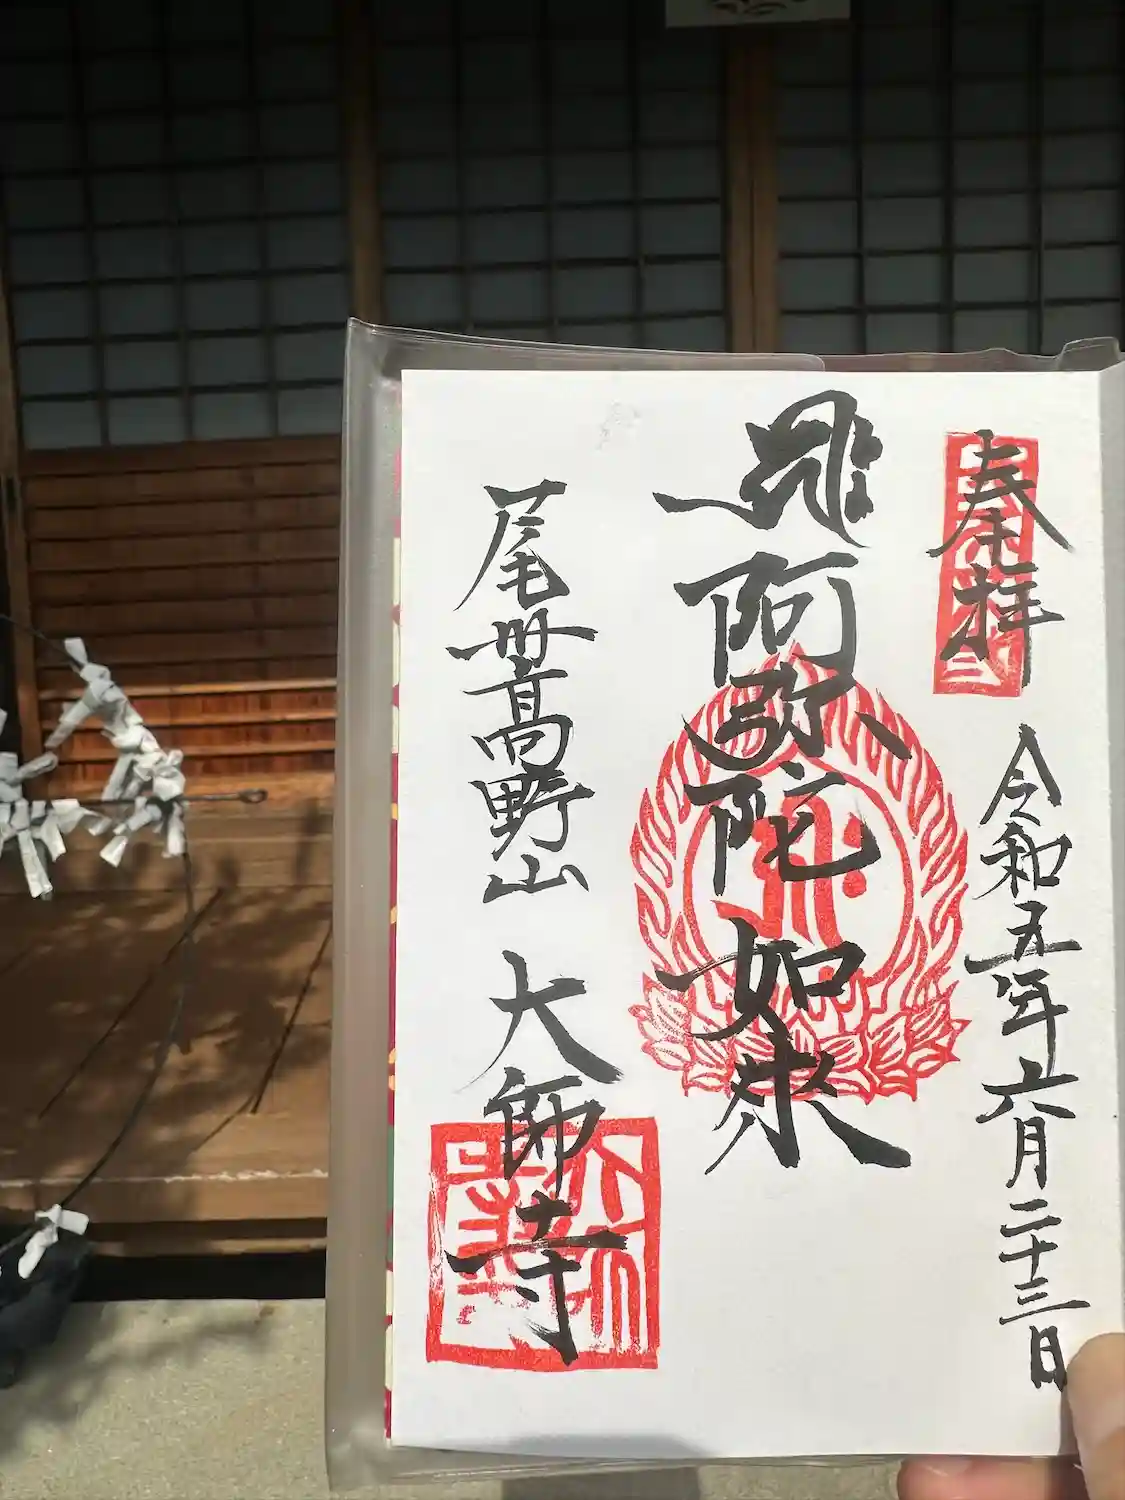 奉拝
令和五年六月二十三日
阿弥陀如来
尾卋高野山 大師寺